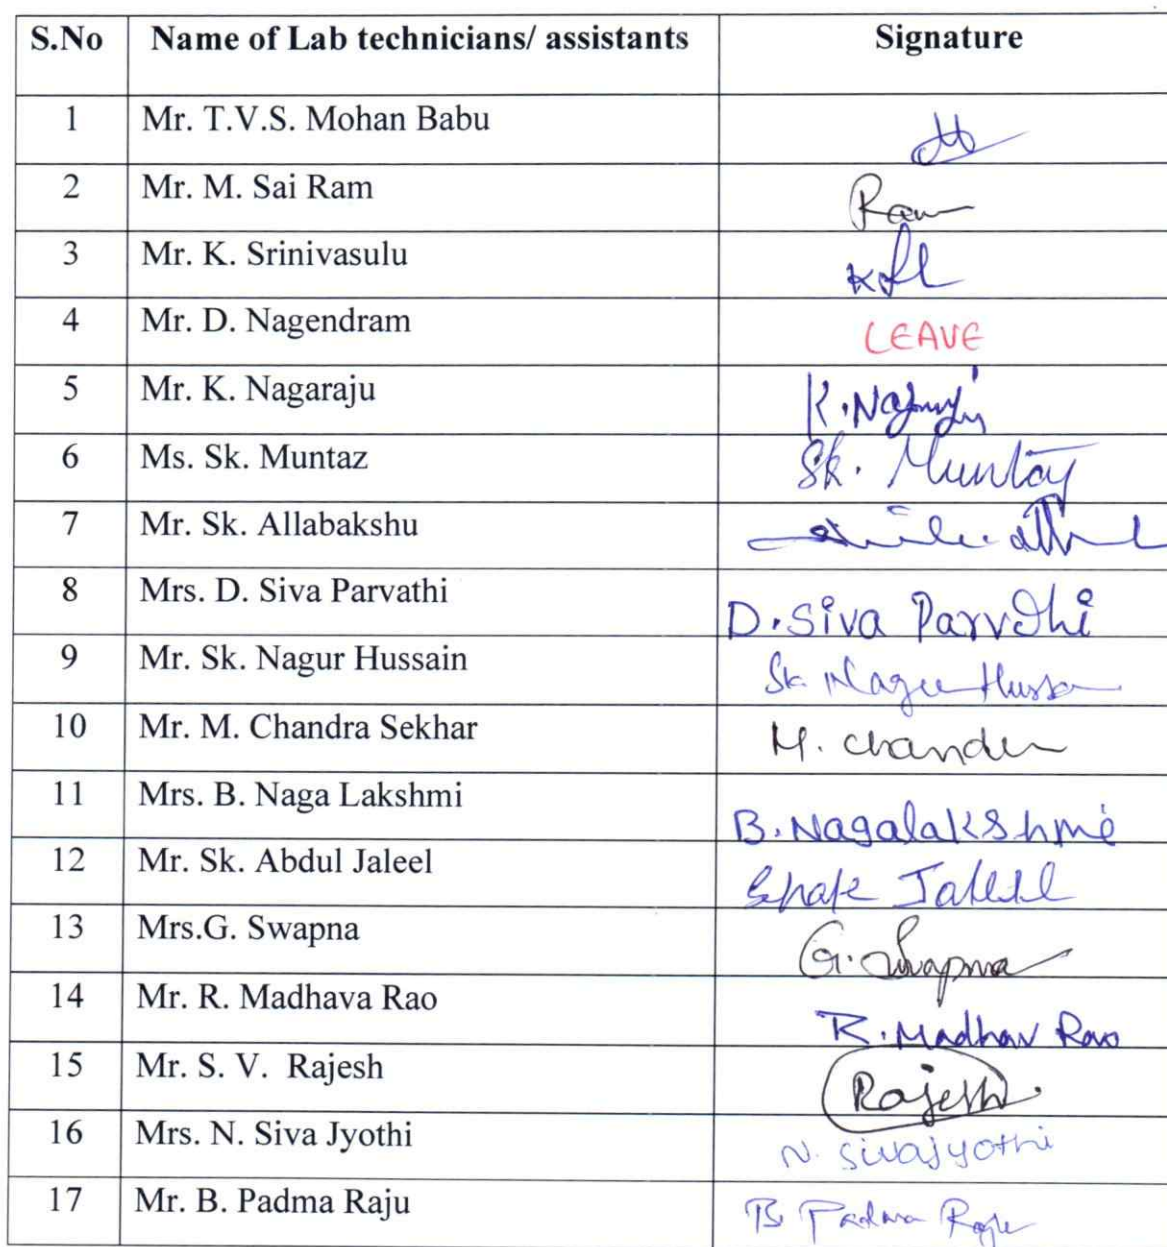 S.No Name of Lab technicians/ assistants Signature
1 Mr. T.V.S. Mohan Babu
2 Mr. M. Sai Ram Ram
3 Mr. K. Srinivasulu
4 Mr. D. Nagendram LEAVE
5 Mr. K. Nagaraju
6 Ms. Sk. Muntaz Sk. Muntaz
7 Mr. Sk. Allabakshu
8 Mrs. D. Siva Parvathi D. Siva Parvathi
9 Mr. Sk. Nagur Hussain
10 Mr. M. Chandra Sekhar M.
11 Mrs. B. Naga Lakshmi B. Nagalakshmi
12 Mr. Sk. Abdul Jaleel
13 Mrs.G. Swapna G. Swapna
14 Mr. R. Madhava Rao R. Madhav Rao
15 Mr. S. V. Rajesh Rajesh
16 Mrs. N. Siva Jyothi N. Sivajyothi
17 Mr. B. Padma Raju B. Padma Raju